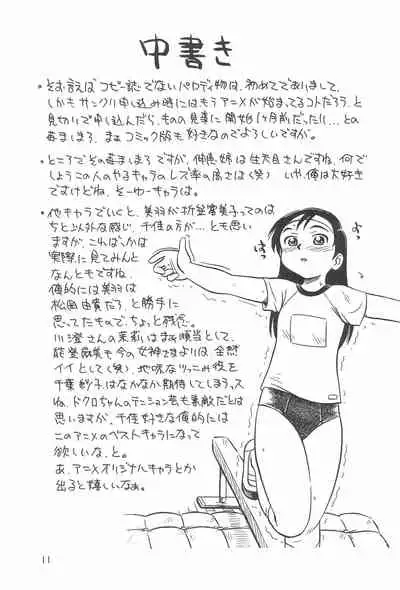 中書き
・そお言えばコピー誌でないパロディ物は、初めてでありまして、
しかもサンクリ申し込み時にはもうアニメが始まってるコトだろう、と
見切りで申し込んだら、ものの見事に開始1ヶ月前だった!…との
苺ましまろ、まぁコミック版も好きなのでよろしいですが。
・ところでその苺ましまろですが、伸恵姉は生天目さんですね、何で
しょうこの人のやるキャラのレズ率の高さは(笑) いや、俺は大好き
ですけどね、そーゆーキャラは。
・他キャラでいくと、美羽が折笠富美子ってのは
ちと以外な感じ、千佳の方が…とも思い
ますが、こればっかは
実際に見てみんと
なんともですね、
俺的には美羽は
松岡由貴だろ、と勝手に
思ってたもので、ちょっと残念。
川澄さんの茉莉はまぁ順当として、
能登麻美も今の女神さまよりは全然
イイとして(笑)、地味なツッこみ役を
千葉紗子はなかなか期待してしまうッス
ね、ドクロちゃんのテンション若も素敵だとは
思いますが、千佳好きな俺的には
このアニメのベストキャラになって
欲しいな、と。
あ、アニメオリジナルキャラとか
出ると嬉しいなぁ。
11